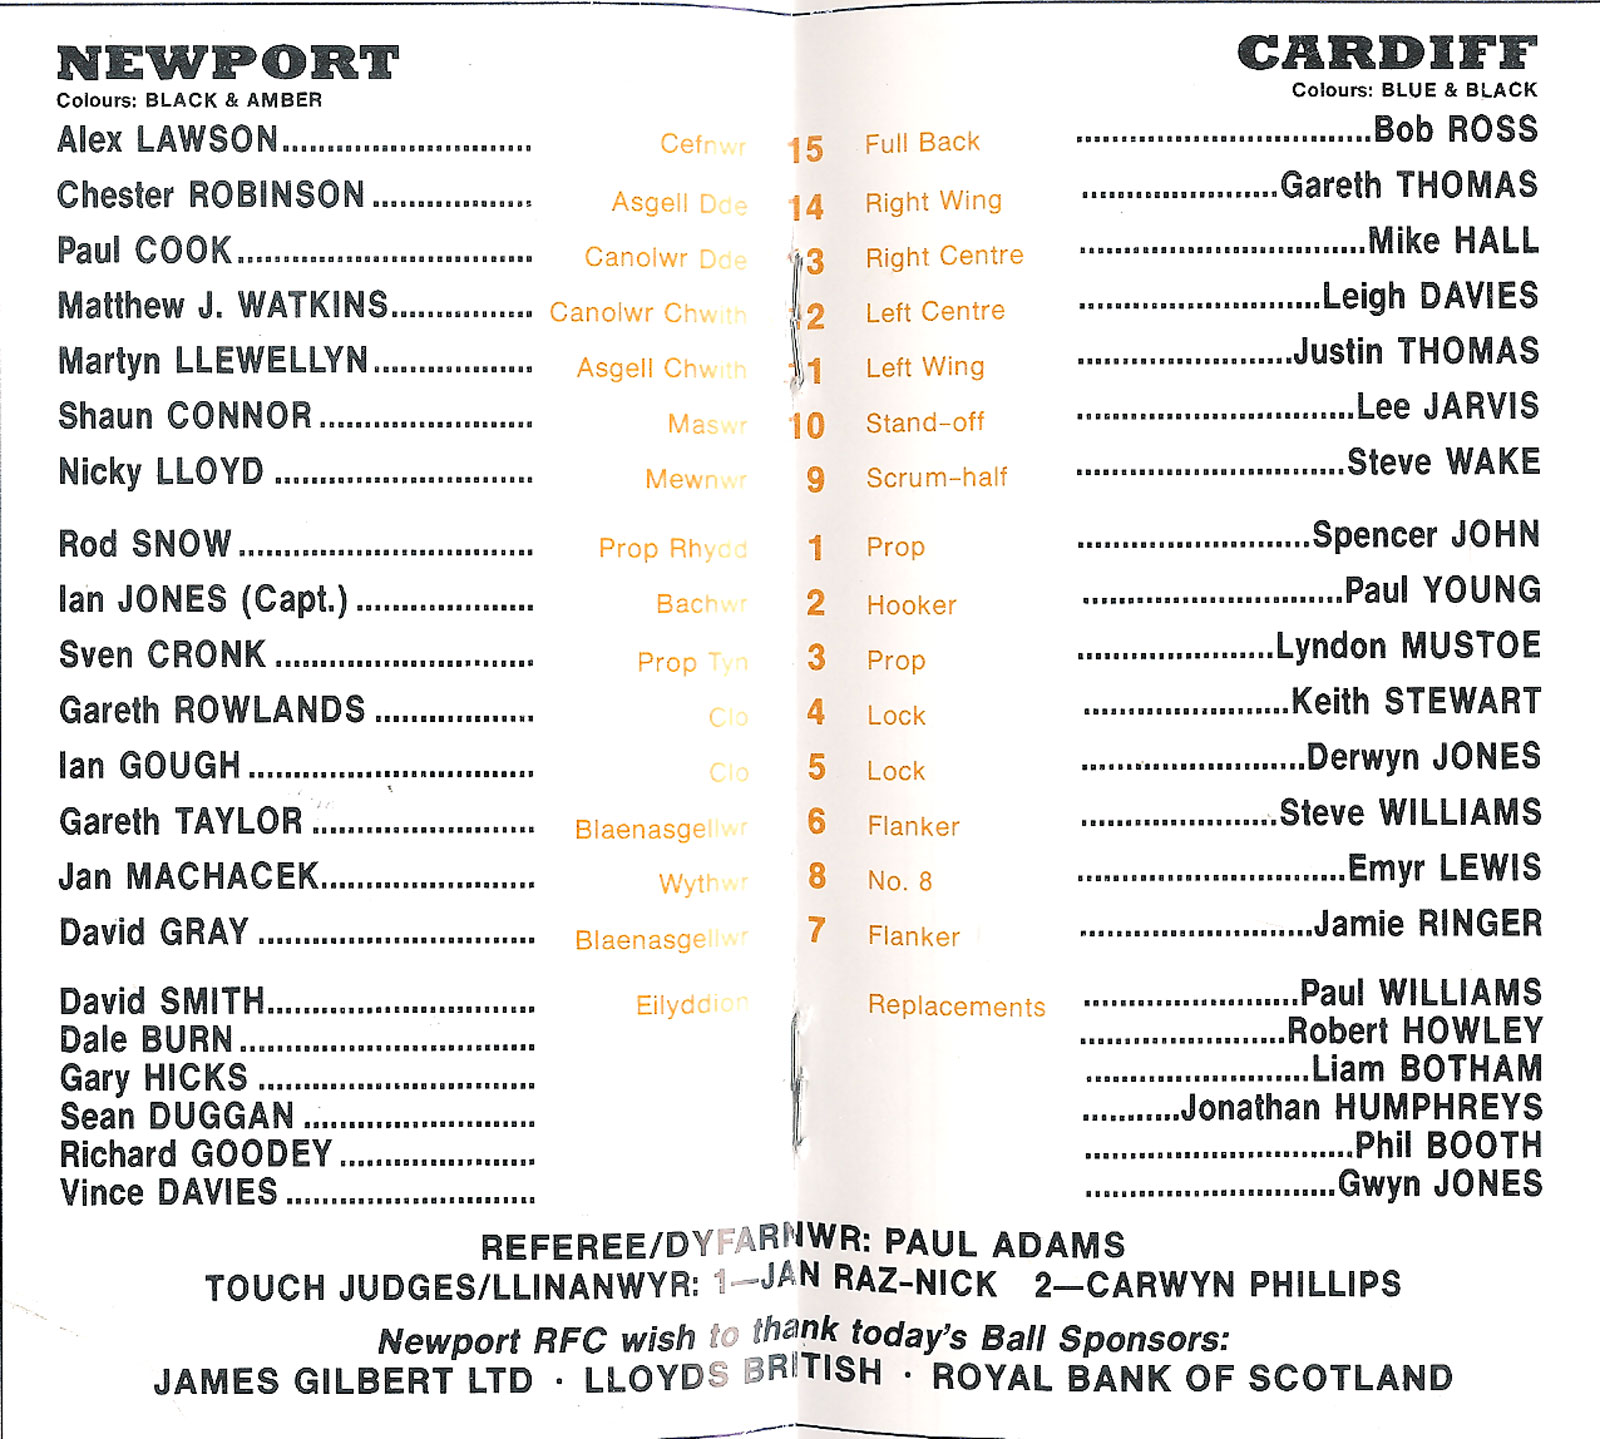 NEWPORT CARDIFF
Colours: BLACK & AMBER Colours: BLUE & BLACK
Alex LAWSON Cefnwr 15 Full Back Bob ROSS
Chester ROBINSON Asgell Dde 14 Right Wing Gareth THOMAS
Paul COOK Canolwr Dde 13 Right Centre Mike HALL
Matthew J. WATKINS Canolwr Chwith 12 Left Centre Leigh DAVIES
Martyn LLEWELLYN Asgell Chwith 11 Left Wing Justin THOMAS
Shaun CONNOR Maswr 10 Stand-off Lee JARVIS
Nicky LLOYD Mewnwr 9 Scrum-half Steve WAKE
Rod SNOW Prop Rhydd 1 Prop Spencer JOHN
Ian JONES (Capt.) Bachwr 2 Hooker Paul YOUNG
Sven CRONK Prop Tyn 3 Prop Lyndon MUSTOE
Gareth ROWLANDS Clo 4 Lock Keith STEWART
Ian GOUGH Clo 5 Lock Derwyn JONES
Gareth TAYLOR Blaenasgellwr 6 Flanker Steve WILLIAMS
Jan MACHACEK Wythwr 8 No. 8 Emyr LEWIS
David GRAY Blaenasgellwr 7 Flanker Jamie RINGER
David SMITH Eilyddion Replacements Paul WILLIAMS
Dale BURN Robert HOWLEY
Gary HICKS Liam BOTHAM
Sean DUGGAN Jonathan HUMPHREYS
Richard GOODEY Phil BOOTH
Vince DAVIES Gwyn JONES
REFEREE/DYFARNWR: PAUL ADAMS
TOUCH JUDGES/LLINANWYR: 1—JAN RAZ-NICK 2—CARWYN PHILLIPS
Newport RFC wish to thank today's Ball Sponsors:
JAMES GILBERT LTD · LLOYDS BRITISH · ROYAL BANK OF SCOTLAND